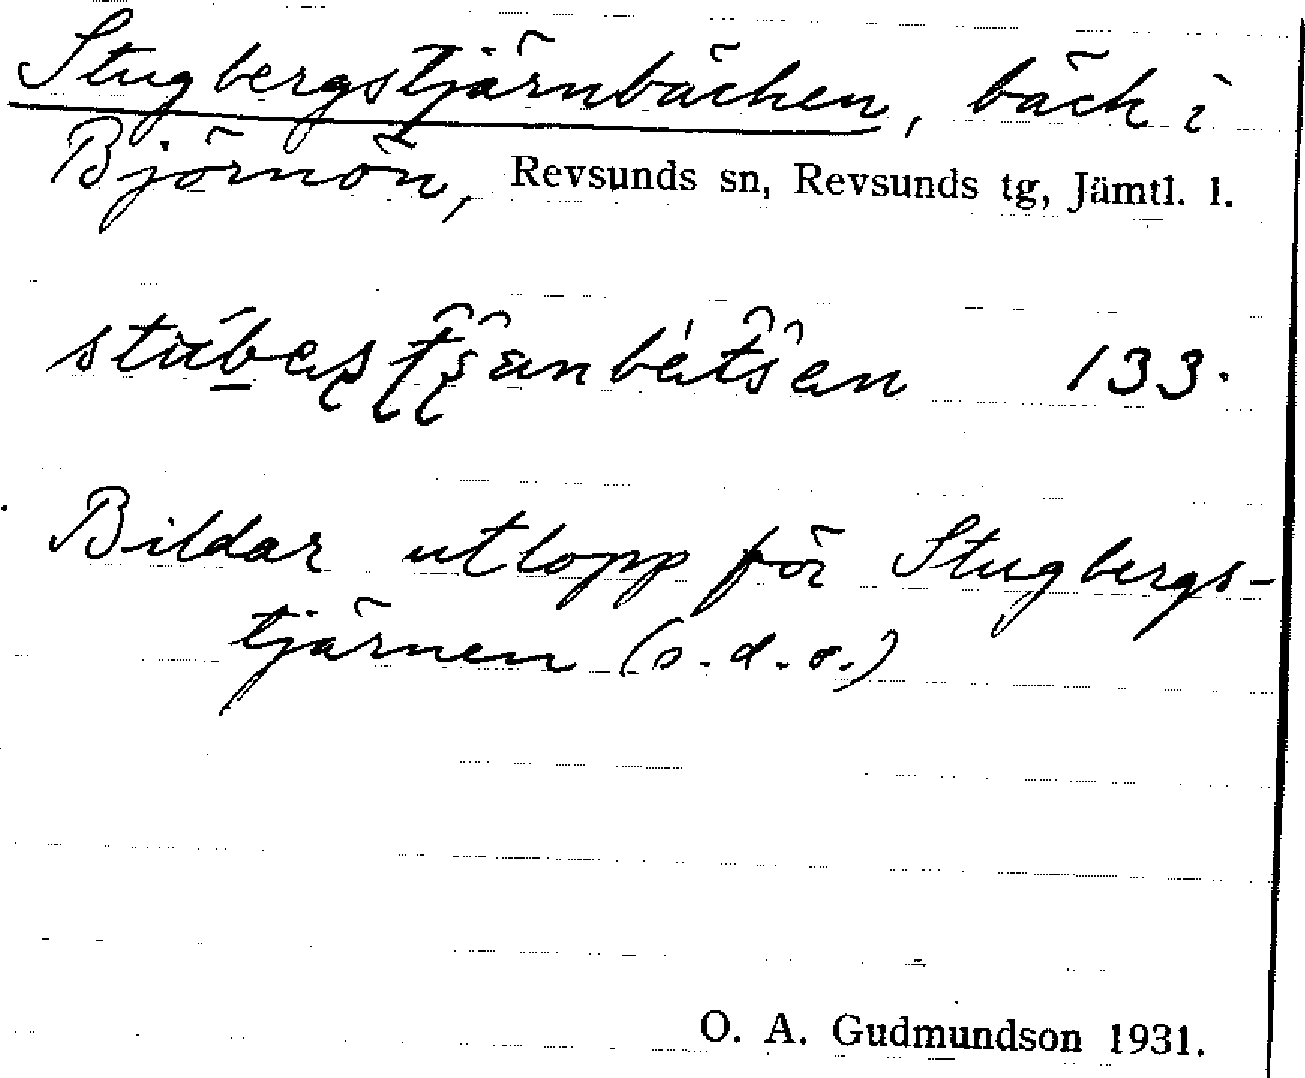 Stugbergstjärnbäcken, bäck i
Björnön, Revsunds sn, Revsunds tg, Jämtl. l.
133.
Bildar utlopp för Stugbergs-
tjärnen (s. d. o.)
O. A. Gudmundson 1931.